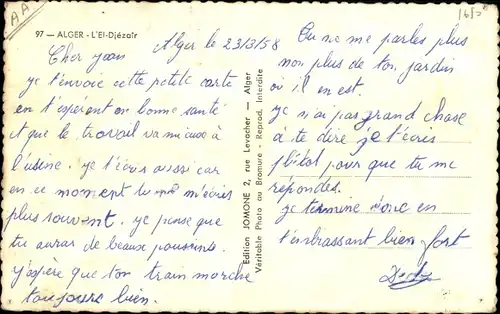 97 — ALGER - L'El-Djézaïr
Alger le 23/3/58
Cher Jean
je t'envoie cette petite carte
en t'esperent en bonne santé
et que le travail va mieux à
l'usine. je t'écris aussi car
en ce moment tu m'écris
plus souvent. je pense que
tu auras de beaux poussins.
j'espère que ton train marche
toujours bien.
Edition JOMONE 2, rue Levacher — Alger
Véritable Photo au Bromure - Reprod. Interdite
Tu ne me parles plus
non plus de ton jardin
où il en est.
je n'ai pas grand chose
à te dire je t'écris
plutot pour que tu me
répondes.
je termine donc en
t'embrassant bien fort
Dédé